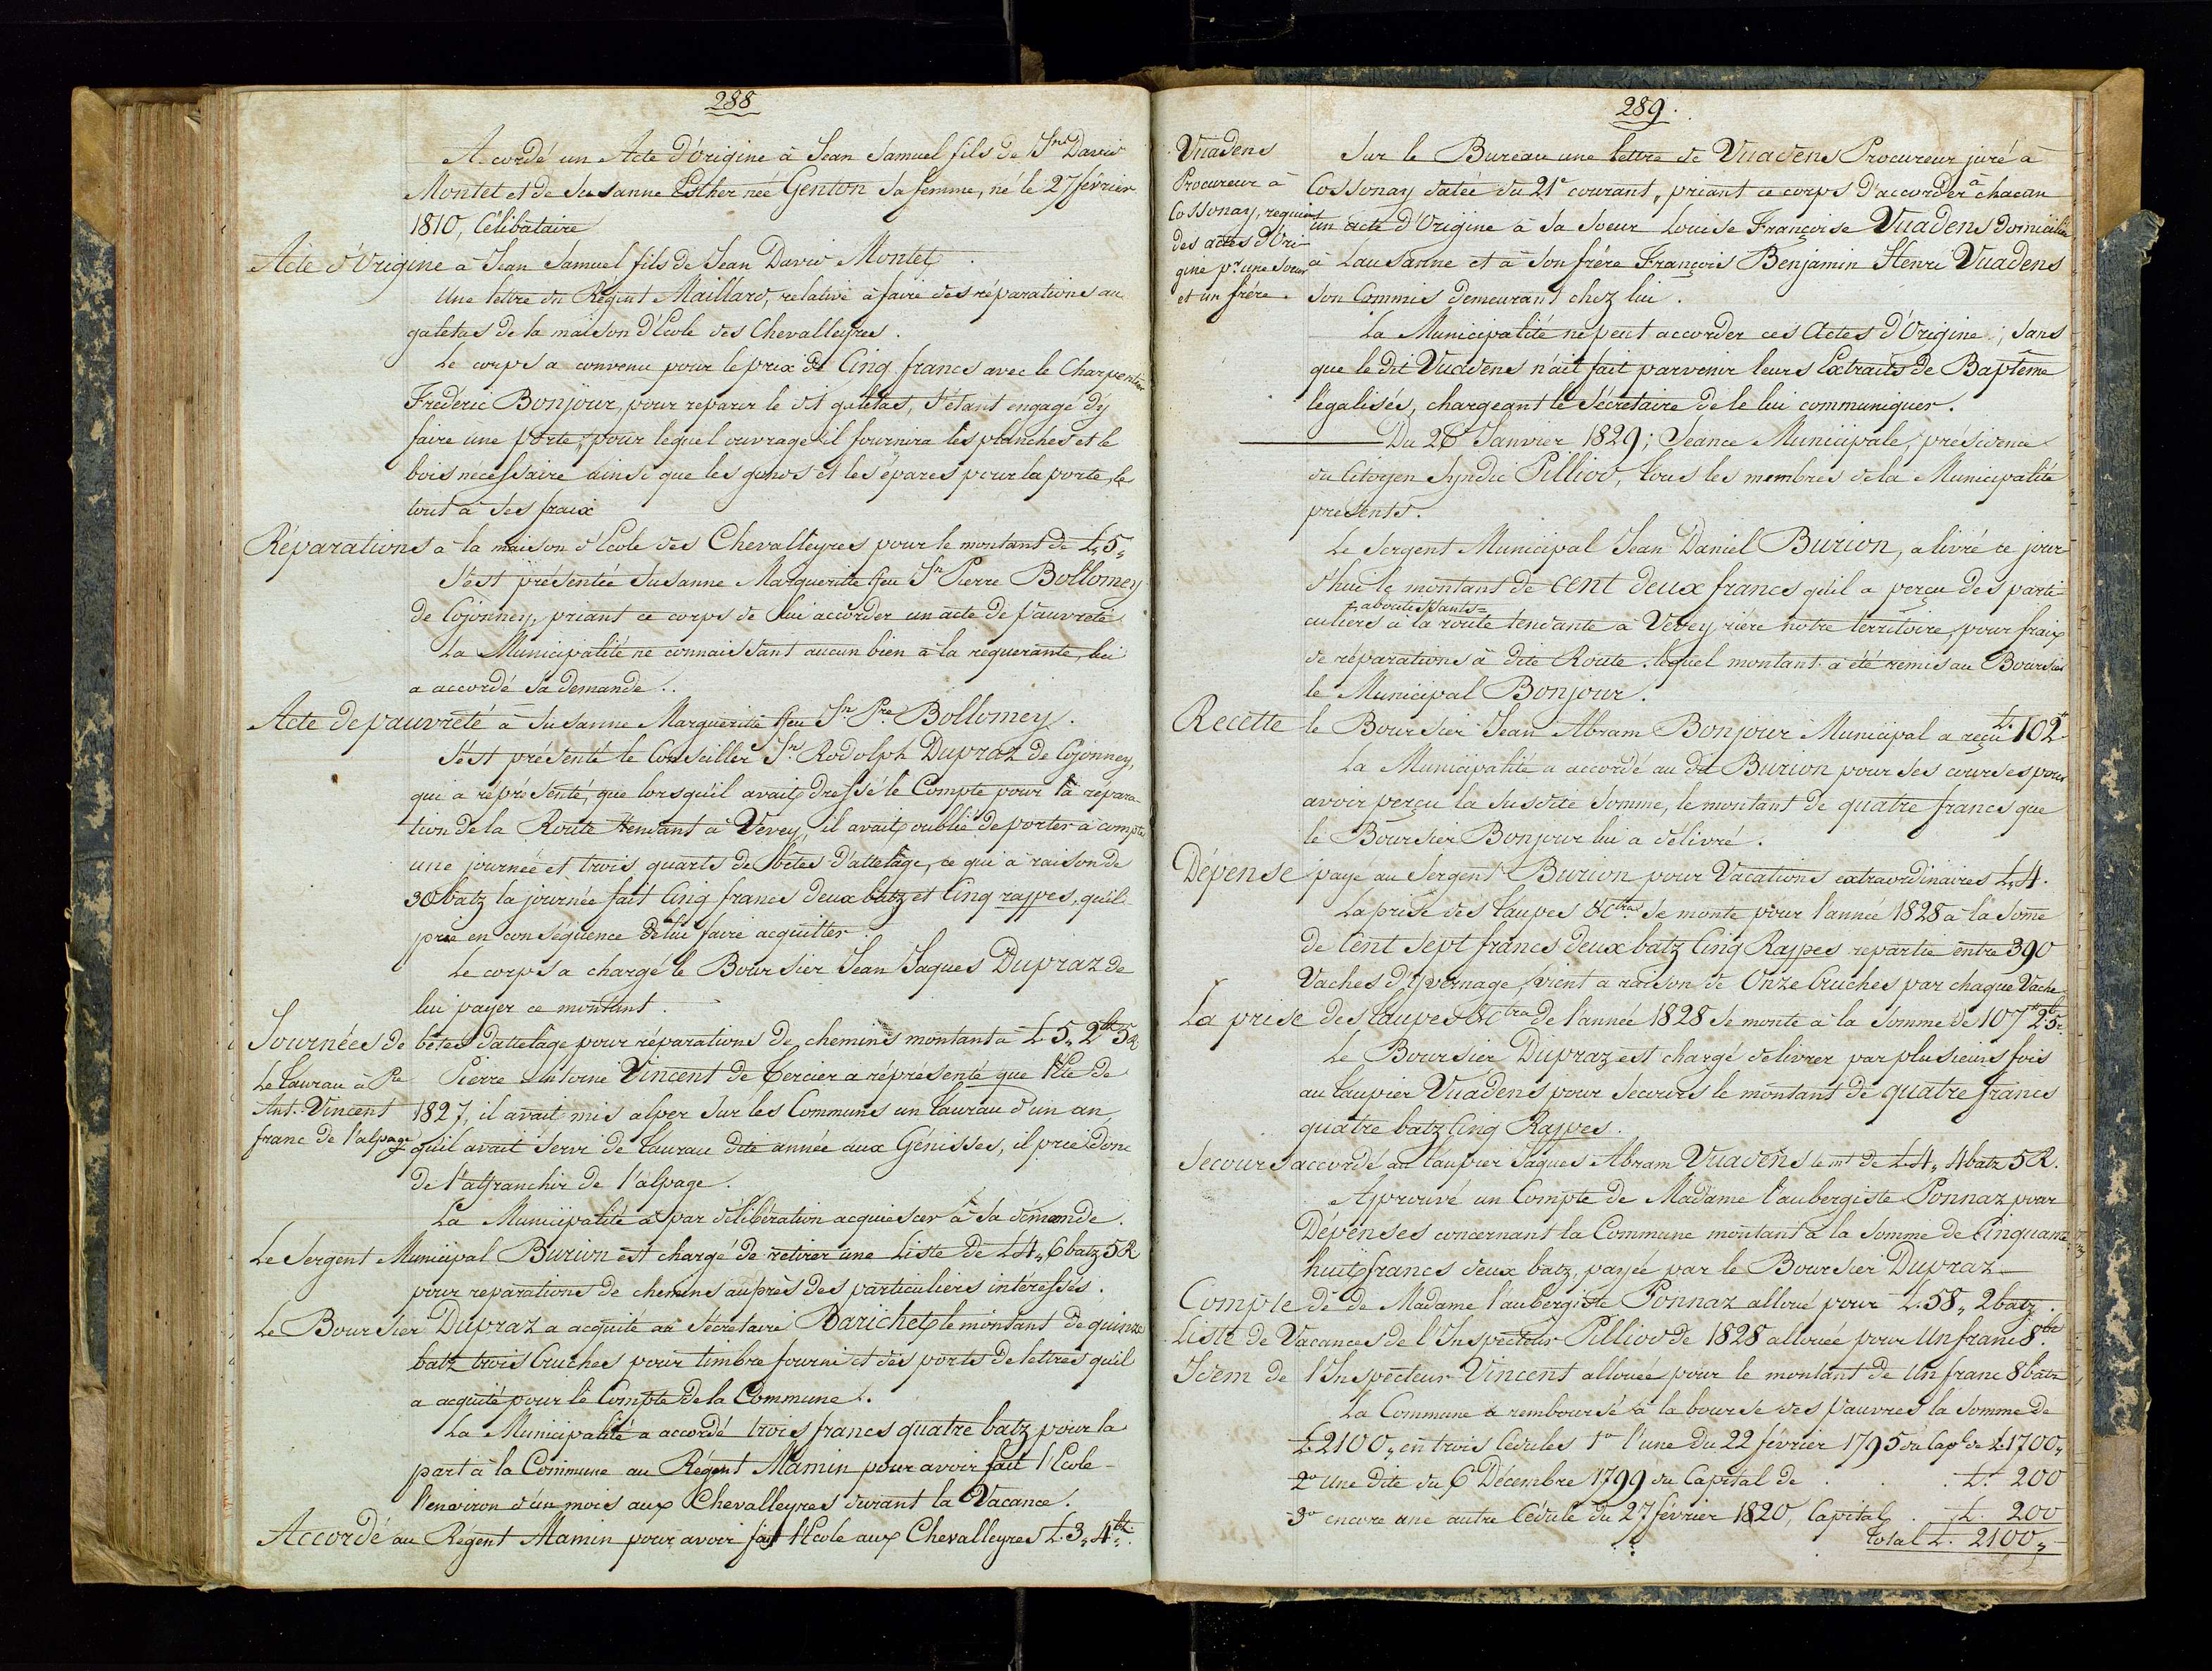 288
Accordé un Acte d'Origine à Jean Samuel fils de Jn David
Montet et de Susanne Esther née Genton sa femme, né le 27 février
1810, Célibataire
Acte d'Origine à Jean Samuel fils de Jean David Montet
Une lettre du Régent Maillard, relative à faire des réparations au
galetas de la maison d'Ecole des Chevalleyres.
Le corps a convenu pour le prix de Cinq francs avec le Charpentier
Fréderic Bonjour, pour reparer le dit galetas, s'étant engagé d'y
faire une porte, pour lequel ouvrage il fournira les planches et le
bois nécessaire ainsi que les gonds et les épares pour la porte, le
tout à ses fraix
Réparations à la maison d'Ecole des Chevalleyres pour le montant de L. 5„
S'est présentée Susanne Marguerite feu Jn Pierre Bollomey
de Cojonney, priant ce corps de lui accorder un acte de pauvreté
La Municipalité ne connaissant aucun bien à la requerante, lui
a accordé sa demande..
Acte de pauvreté à Susanne Marguerite feu Jn Pre Bollomey.
S'est présenté le Conseiller Jn Rodolph Dupraz de Cojonney,
qui a réprésenté, que lorsqu'il avait dressé le Compte pour la répara-
tion de la Route tendant à Vevey, il avait oublié de porter à compte
une journée et trois quarts de bêtes d'attelage, ce qui à raison de
30 batz la journée fait Cinq francs deux batz et Cinq rappes, qu'il
prie en conséquence de lui faire acquitter.
Le corps a chargé le Boursier Jean Jaques Dupraz de
lui payer ce montant.
Journées de bêtes d'attelage pour réparations de chemins montant à L. 5„ 2 bz 5 R
Le taurau à Pre
Ant. Vincent
franc de l'alpage
Pierre Antoine Vincent de Tercier a réprésenté que l'Eté de
1827, il avait mis alper sur les Communs un taurau d'un an
qu'il avait servi de taurau dite année aux Génisses, il prie donc
de l'affranchir de l'alpage.
La Municipalité a par délibération acquiescer à sa démande.
Le Sergent Municipal Burion est chargé de retirer une Liste de L. 4„ 6 batz 5 R
pour reparations de chemins auprès des particuliers intéressés.
Le Boursier Dupraz a acquité au Sécretaire Barichet le montant de quinze
batz trois Cruches pour timbre fourni et des ports de lettres qu'il
a acquité pour le Compte de la Commune.
La Municipalité a accordé trois francs quatre batz pour la
part à la Commune au Régent Mamin pour avoir fait l'Ecole
l'environ d'un mois aux Chevalleyres durant la Vacance.
Accordé au Régent Mamin pour avoir fait l'Ecole aux Chevalleyres L. 3„ 4 bz.
289.
Vuadens
Procureur à
Cossonay, requiert
des actes d'Ori-
gine pr une soeur
et un frére.
Sur le Bureau une lettre de Vuadens Procureur juré à
Cossonay datée du 21e courant, priant ce corps d'accorder à chacun
un acte d'Origine à sa soeur Louise Françoise Vuadens domiciliée
à Lausanne et à son frére François Benjamin Henri Vuadens
son Commis demeurant chez lui.
La Municipalité ne peut accorder ces Actes d'Origine, sans
que le dit Vuadens n'ait fait parvenir leurs Extraits de Baptême
légalisés, chargeant le Sécretaire de le lui communiquer.
Du 28 Janvier 1829; Séance Municipale, présidence
du Citoyen Syndic Pilliod, tous les membres de la Municipalité
présents.
Le Sergent Municipal Jean Daniel Burion, a livré ce jour-
d'hui le montant de cent deux francs qu'il a perçu des parti-
aboutissants
culiers à la route tendante à Vevey, rière notre territoire, pour fraix
de réparations à dite Route. lequel montant a été remis au Boursier
le Municipal Bonjour.
Recette le Boursier Jean Abram Bonjour Municipal a reçu L. 102
La Municipalité a accordé au dit Burion pour ses courses pour
avoir perçu la susdite somme, le montant de quatre francs que
le Boursier Bonjour lui a délivré.
Dépense payé au Sergent Burion pour Vacations extraordinaires L. 4.
La prise des taupes &ctra se monte pour l'année 1828 à la some
de Cent sept francs deux batz Cinq Rappes repartie entre 390
Vaches d'hyvernage, vient à raison de Onze Cruches par chaque Vache
La prise des taupes &ctra de l'année 1828 se monte à la somme de 107 fr 2 b 5 r
Le Boursier Dupraz est chargé de livrer par plusieurs fois
au taupier Vuadens pour secours le montant de quatre francs
quatre batz Cinq Rappes.
Secours accordé au taupier Jaques Abram Vuadens le mt de L. 4„ 4 batz 5 R.
Approuvé un Compte de Madame l'aubergiste Ponnaz pour
Dépenses concernant la Commune montant à la somme de Cinquante
huit francs deux batz, payée par le Boursier Dupraz
Compte de de Madame l'aubergiste Ponnaz alloué pour L. 58„ 2 batz.
Liste de Vacances de l'Inspecteur Pilliod de 1828 allouée pour Un franc 8 bz.
Idem de l'Inspecteur Vincent allouée pour le montant de Un franc 8 batz
La Commune a remboursé à la bourse des pauvres la somme de
L. 2100„ en trois Cédules 1o l'une du 22 février 1795 du Capl de L. 1700„
2o Une dite du 6 Décembre 1799 du Capital de . . L. 200
3o encore une autre Cédule du 27 février 1820, Capital . L. 200
total L. 2100„